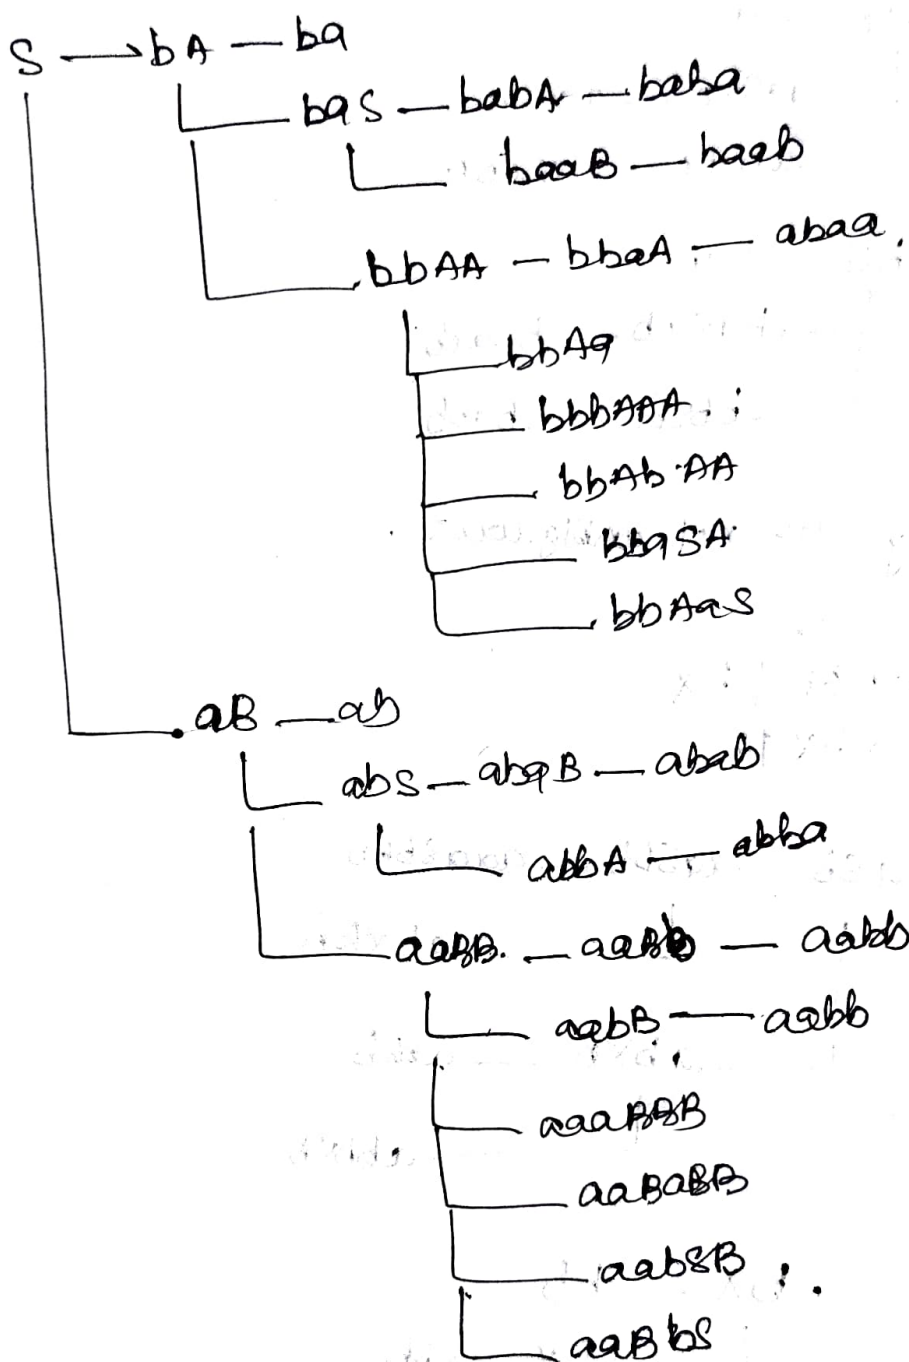 S → bA — ba
baS — babA — baba
baaB — baab
bbAA — bbaA — abaa.
bbAa
bbbAAA
bbAbAA
bbaSA
bbAaS
aB — ab
abS — abaB — abab
abbA — abba
aaBB. — aaBb — aabb
aabB — aabb
aaaBBB
aaBaBB
aabSB
aaBbS